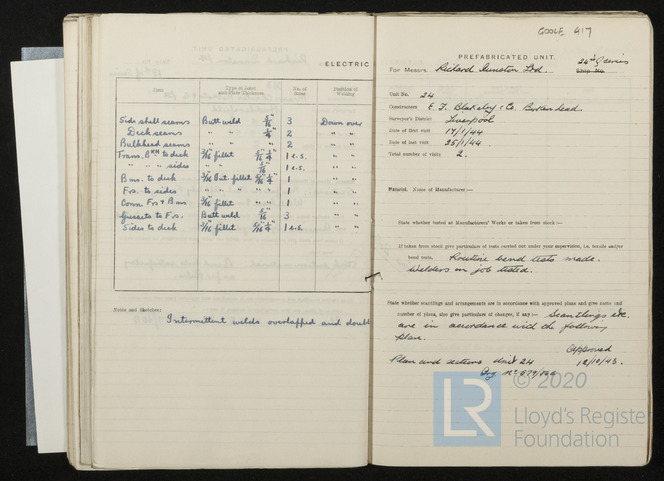 ELECTRIC
Item Type of Joint and Plate Thickness No. of Runs Position of Welding
Side shell seams Butt weld 5/16" 3 Down over
Deck seams " " 1/4" 2 " "
Bulkhead seams " " 2 " "
Trans. BKH to deck 3/16 fillet 5/16" 1/4" 1 e.s. " "
" " " sides " " 5/16" 1 e.s. " "
Bms. to deck 3/16 Int. fillet 5/16" 1/4" 1 " "
Frs. to sides " " " " " 1 " "
Conn Frs & Bms 3/16" fillet 1 " "
Gussets to Frs. Butt weld 5/16" 3 " "
Sides to deck 3/16" fillet 5/16" 1/4" 1 e.s. " "
Notes and Sketches:
Intermittent welds overlapped and doubl
GOOLE 917
PREFABRICATED UNIT.
For Messrs. Richard Dunston Ltd. Ship No.
Unit No. 24
Constructors E. J. Blakeley & Co. Birkenhead
Surveyor's District Liverpool
Date of first visit 17/1/44
Date of last visit 25/1/44
Total number of visits 2.
Material. Name of Manufacturer:—
State whether tested at Manufacturers' Works or taken from stock:—
If taken from stock give particulars of tests carried out under your supervision, i.e. tensile and/or
bend tests, Routine bend tests made.
Welders on job tested.
State whether scantlings and arrangements are in accordance with approved plans and give name and
number of plans, also give particulars of changes, if any:— Scantlings etc.
are in accordance with the following
plan.
Approved
Plan and sections Unit 24 12/10/43.
Drg No
© 2020
LR Lloyd's Register
Foundation